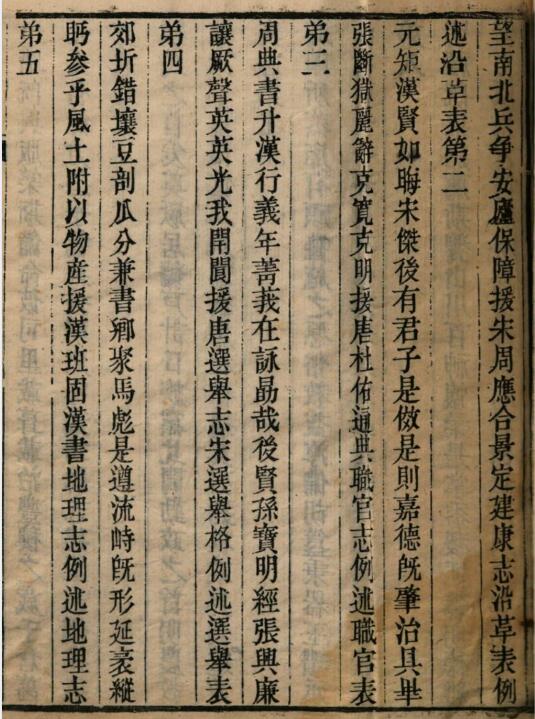 望南北兵爭安廬保障援宋周應合景定建康志沿革表例
述沿革表第二
元矩漢賢如晦宋傑後有君子是倣是則嘉德旣肇治具畢
張斷獄麗辭克寬克明援唐杜佑通典職官志例述職官表
弟三
周典書升漢行義年菁莪在詠勗哉後賢孫寶明經張興廉
讓厥聲英英光我閈閎援唐選舉志宋選舉格例述選舉表
弟四
郊圻錯壤豆剖瓜分兼書鄉聚馬彪是遵流峙旣形延袤縱
眄參乎風土附以物產援漢班固漢書地理志例述地理志
弟五